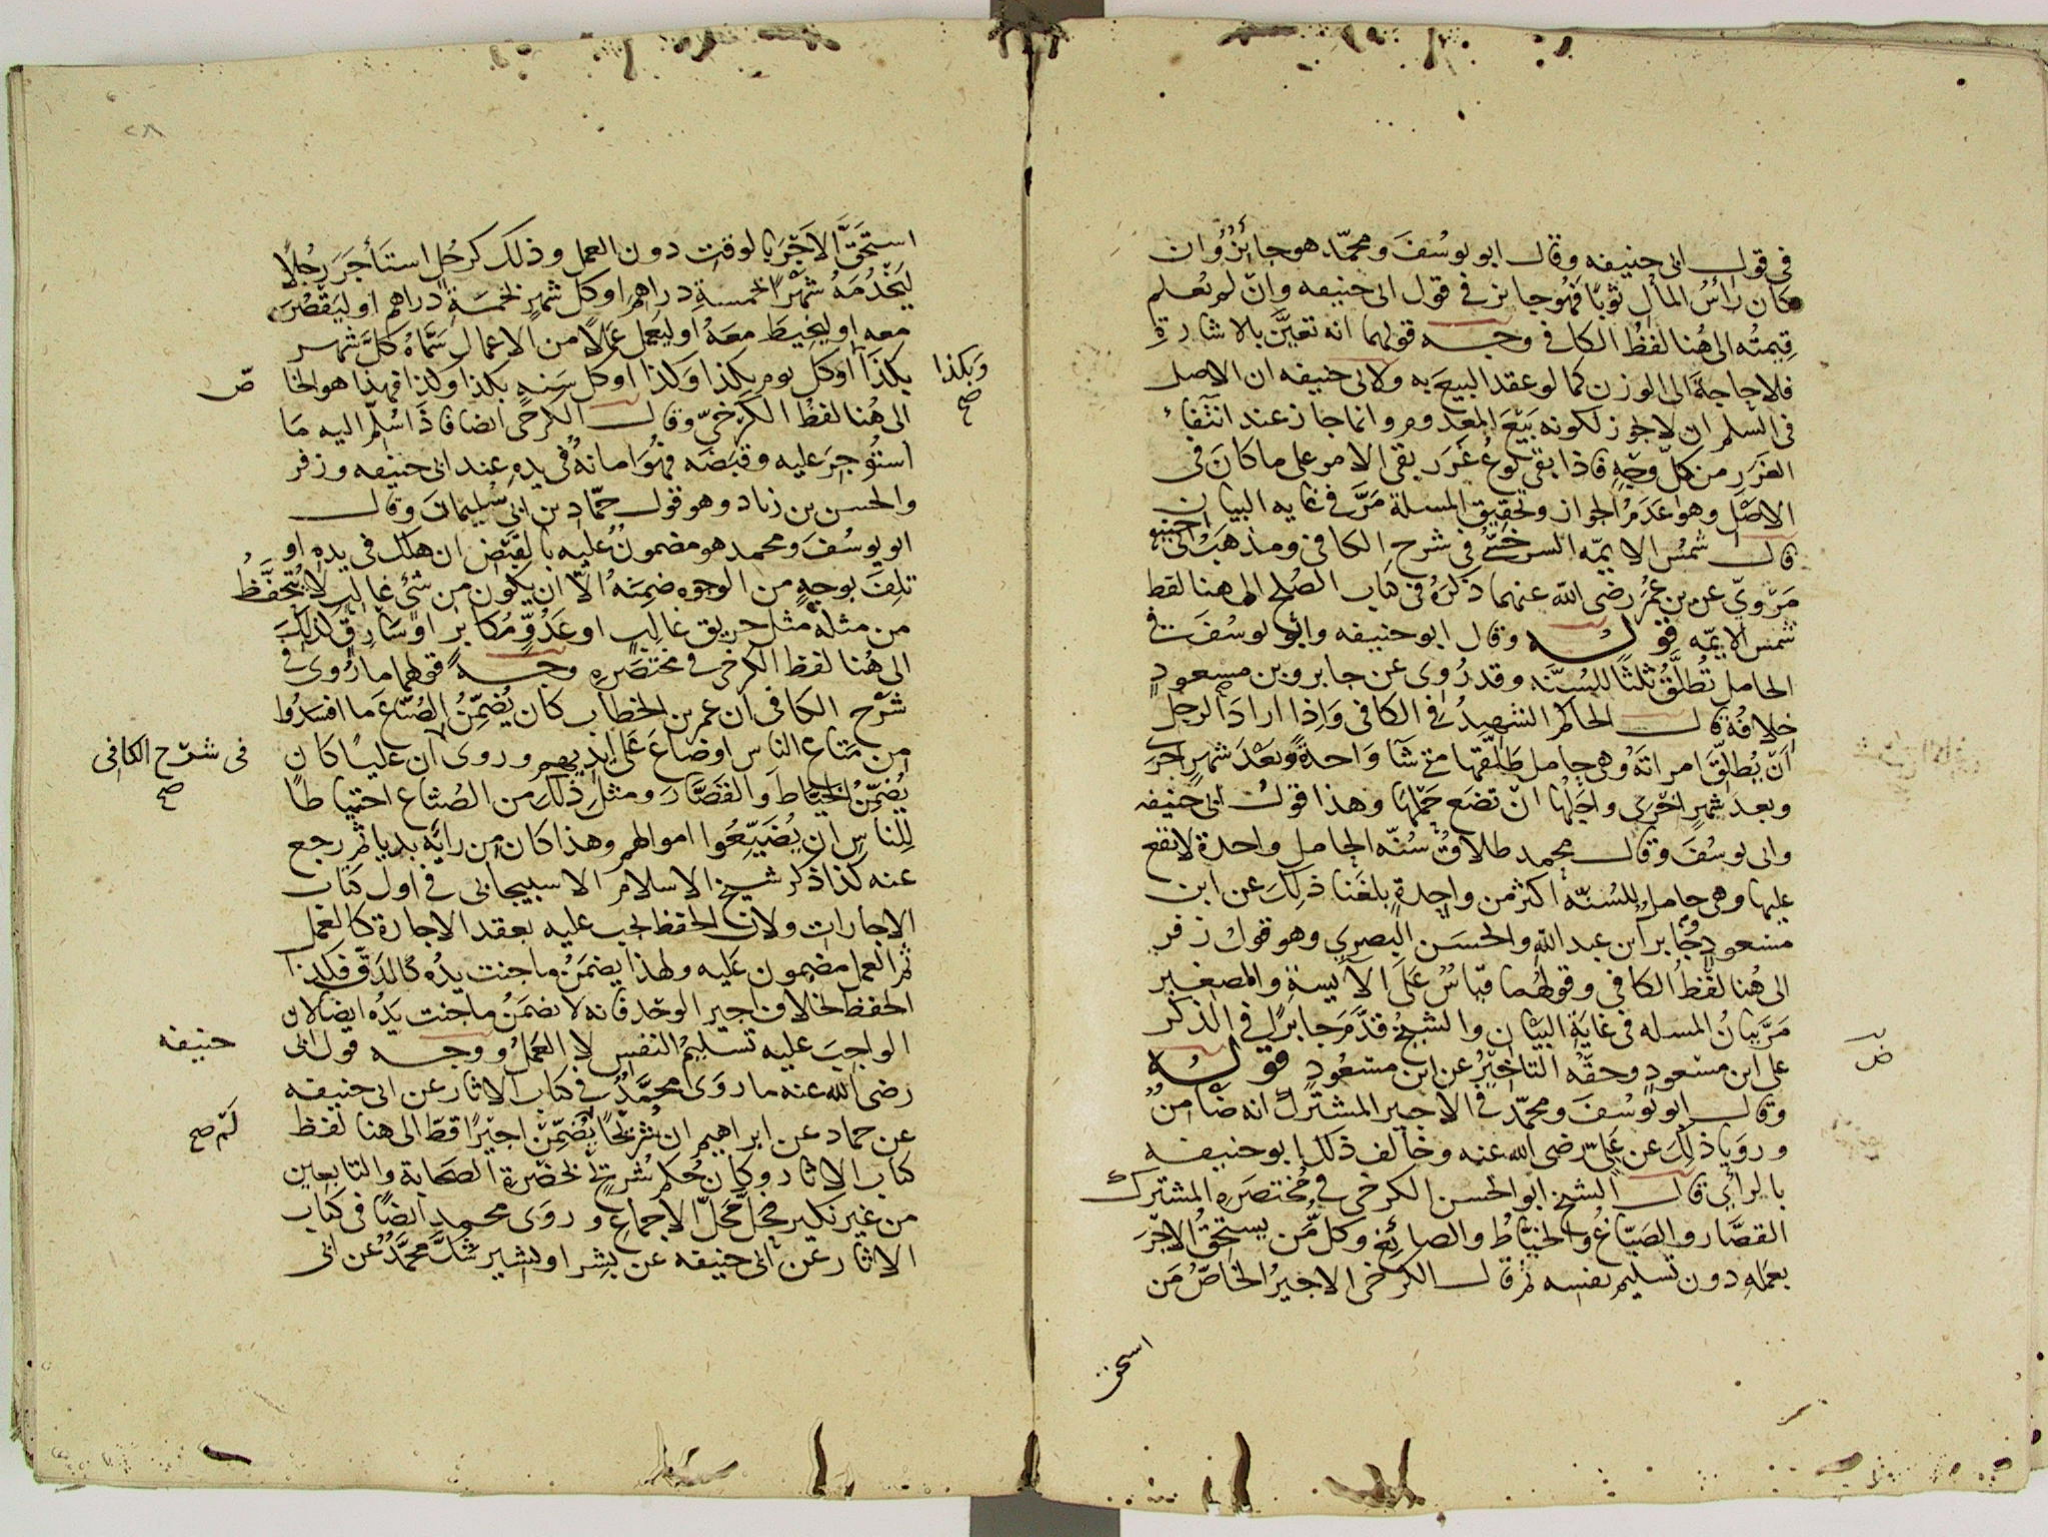 في قول ابي حنيفه وقال ابو يوسُفَ ومحمّد هو جائزٌ وان
كان رأسُ المال ثوبًا فهُو جايز في قول ابي حنيفه وانْ لم يُعلم
قيمتُه الى هُنا لفظُ الكافي وجه قولهما انه تعيَّن بالاشارة
فلا حاجةَ الى الوزن كما لو عقد البيعَ به ولابي حنيفه ان الاصل
في السّلم ان لا يجوز لكونه بَيْعَ المعدوم وانما جاز عند انتفاء
الغَرَرِ من كلّ وجْهٍ فاذا بقي نوعُ غَرَر بقي الامر على ما كانَ في
الاصْل وهو عَدَمُ الجواز وتحقيق المسلة مَرَّ في غايه البيان
قال شمْس الايمّه السرخسيّ في شرح الكافي ومذهبُ ابي حنيفه
مَرْويّ عن بن عُمَر رضى الله عنهما ذكرَهُ في كتاب الصُلح الى هنا لفظ
شمس الايمّه قوله وقال ابو حنيفه وابو يوسُفَ في
الحامل تُطلَّقُ ثلثًا للسُنَّه وقد رُوى عن جابر وبن مسعودٍ
خلافُه قال الحاكم الشهيدُ في الكافي وَاِذا ارادَ الرجُل
اَنْ يُطلِّقَ امراتَهُ وهي حامل طَلَّقها متى شآ وَاحدةً وبَعْدَ شهرٍ اخرَى
وبعدَ شهرٍ اخرَى واجَلُها انْ تضَع حَمْلها وهذا قولُ ابي حنيفه
وابي يوسُفَ وقال محمد طلاقُ سُنّه الحامل واحدة لا تقع
عليها وهي حامل للسُنّه اكثر من واحِدةٍ بلغَنا ذلِكَ عن ابن
مسعودٍ وجُابر ابن عبد الله والحسَن البصري وهو قولُ زفر
الى هُنا لفْظُ الكافي وقولُهما قياسٌ عَلَى الآيسةِ والصغير
مَرَّ بيانُ المسله في غايَة البيَان والشيخُ قدَّمَ جابرًا في الذكر
على ابن مسْعودٍ وحقّهُ التاخِيْرُ عن ابن مسْعُودٍ قوله
وقال ابو يُوسُفَ ومحمّد في الاجير المشتَركُ انه ضَامنٌ
وروَيا ذلِكَ عن عَليّ رضى الله عنه وخالف ذلك ابو حنيفه
بالرأي قال الشيخ ابو الحسن الكرخي في مُختصَره المشترك
القصَّار والصَبّاغُ والخيَّاطُ والصائغ وكلُّ مَن يستحقُ الاجْرَ
بعمَلهِ دون تسليم نفسه ثم قال الكرخي الاجيرُ الخاصُّ مَن
استحق
استحَقَّ الاَجْرَ بالوقتِ دون العمل وذلكَ كرجُلٍ استَأجَرَ رجُلًا
ليَخْدُمَهُ شهْرًا بخمسةِ دراهِمَ او كل شهرٍ بخمسَةِ دراهم او ليَقْصُرَ
معه او ليخيطَ معَهُ او ليَعمل عَملًا من الاعمال سَمَّاهُ كلَّ شهر
بكذَا او كل يوم بكذا وَلذا او كل سَنه بكذا ولذا فهذا هو الخا ص
وَبكذا صح
الى هُنا لفظُ الكرْخيّ وقال الكرخي ايضا فاذَا سُلّم اليه مَا
استُوْجِرَ عليه وقبَضَه فهُوَ امانةٌ في يدهِ عند ابي حنيفه وزفر
والحسن بن زياد وهو قول حمّادِ بن ابي سُليمانَ وقال
ابو يوسُفَ ومحمد هو مضمونٌ عليه بالقَبْض ان هلك في يدهِ او
تلِفَ بوجهٍ من الوجوه ضمِنَهُ الّا ان يكون من شَئٍ غالبٍ لا يُتحفَّظُ
من مثله مثل حريق غالبٍ او عَدُوٍّ مُكابر او سَارِقٍ كذلِكَ
الى هُنا لفظ الكرخي في مختصَرهِ وجهُ قولهما ما رُوى في
شرْح الكافي ان عمر بن الخطاب كان يُضمِّنُ الصُنّاع مَا افسَدُوا
من متاع الناس او ضاعَ عَلَى ايديهم وروى ان عليًا كان
في شرْح الكافي صح
يُضمِّنُ الخيَّاطَ والقصَّارَ ومثلَ ذلِكَ من الصُنّاع احتِياطًا
للناسِ ان يُضَيِّعُوا اموالهم وهذا كان مِن رأيه بديا ثم رجع
عنه كذا ذكر شيخ الاسلام الاسبيجابي في اول كتاب
الاجارات ولان الحفظ يجب عليه بعقد الاجارة كالعَمل
ثم العمل مضمون عَليه ولهذا يضمَنُ ما جنت يدُه كالدَقّ فكذا
الحفظ بخلاف اجير الوحَد فانه لا يضمَنُ ما جنت يَدُه ايضا لان
الواجبَ عليه تسليمُ النفسِ لا العمَلُ ووجه قول ابي
حنيفه
رضى الله عنه ما روَى محمَّدٌ في كتاب الاثار عن ابي حنيفه
عن حماد عن ابراهيم ان شُريْحًا يُضمِّنْ اجيرًا قط الى هنا لفظ
لَمْ صح
كتاب الاثار وكان حُكم شُريحٍ بحَضْرةِ الصحابة والتابعين
من غير نكير فحلّ مَحلَّ الاجماع وروَى محمد ايضًا في كتاب
الاثار عن ابي حنيفه عن بشر او بشير شكَّ محمَّدٌ عن ابي